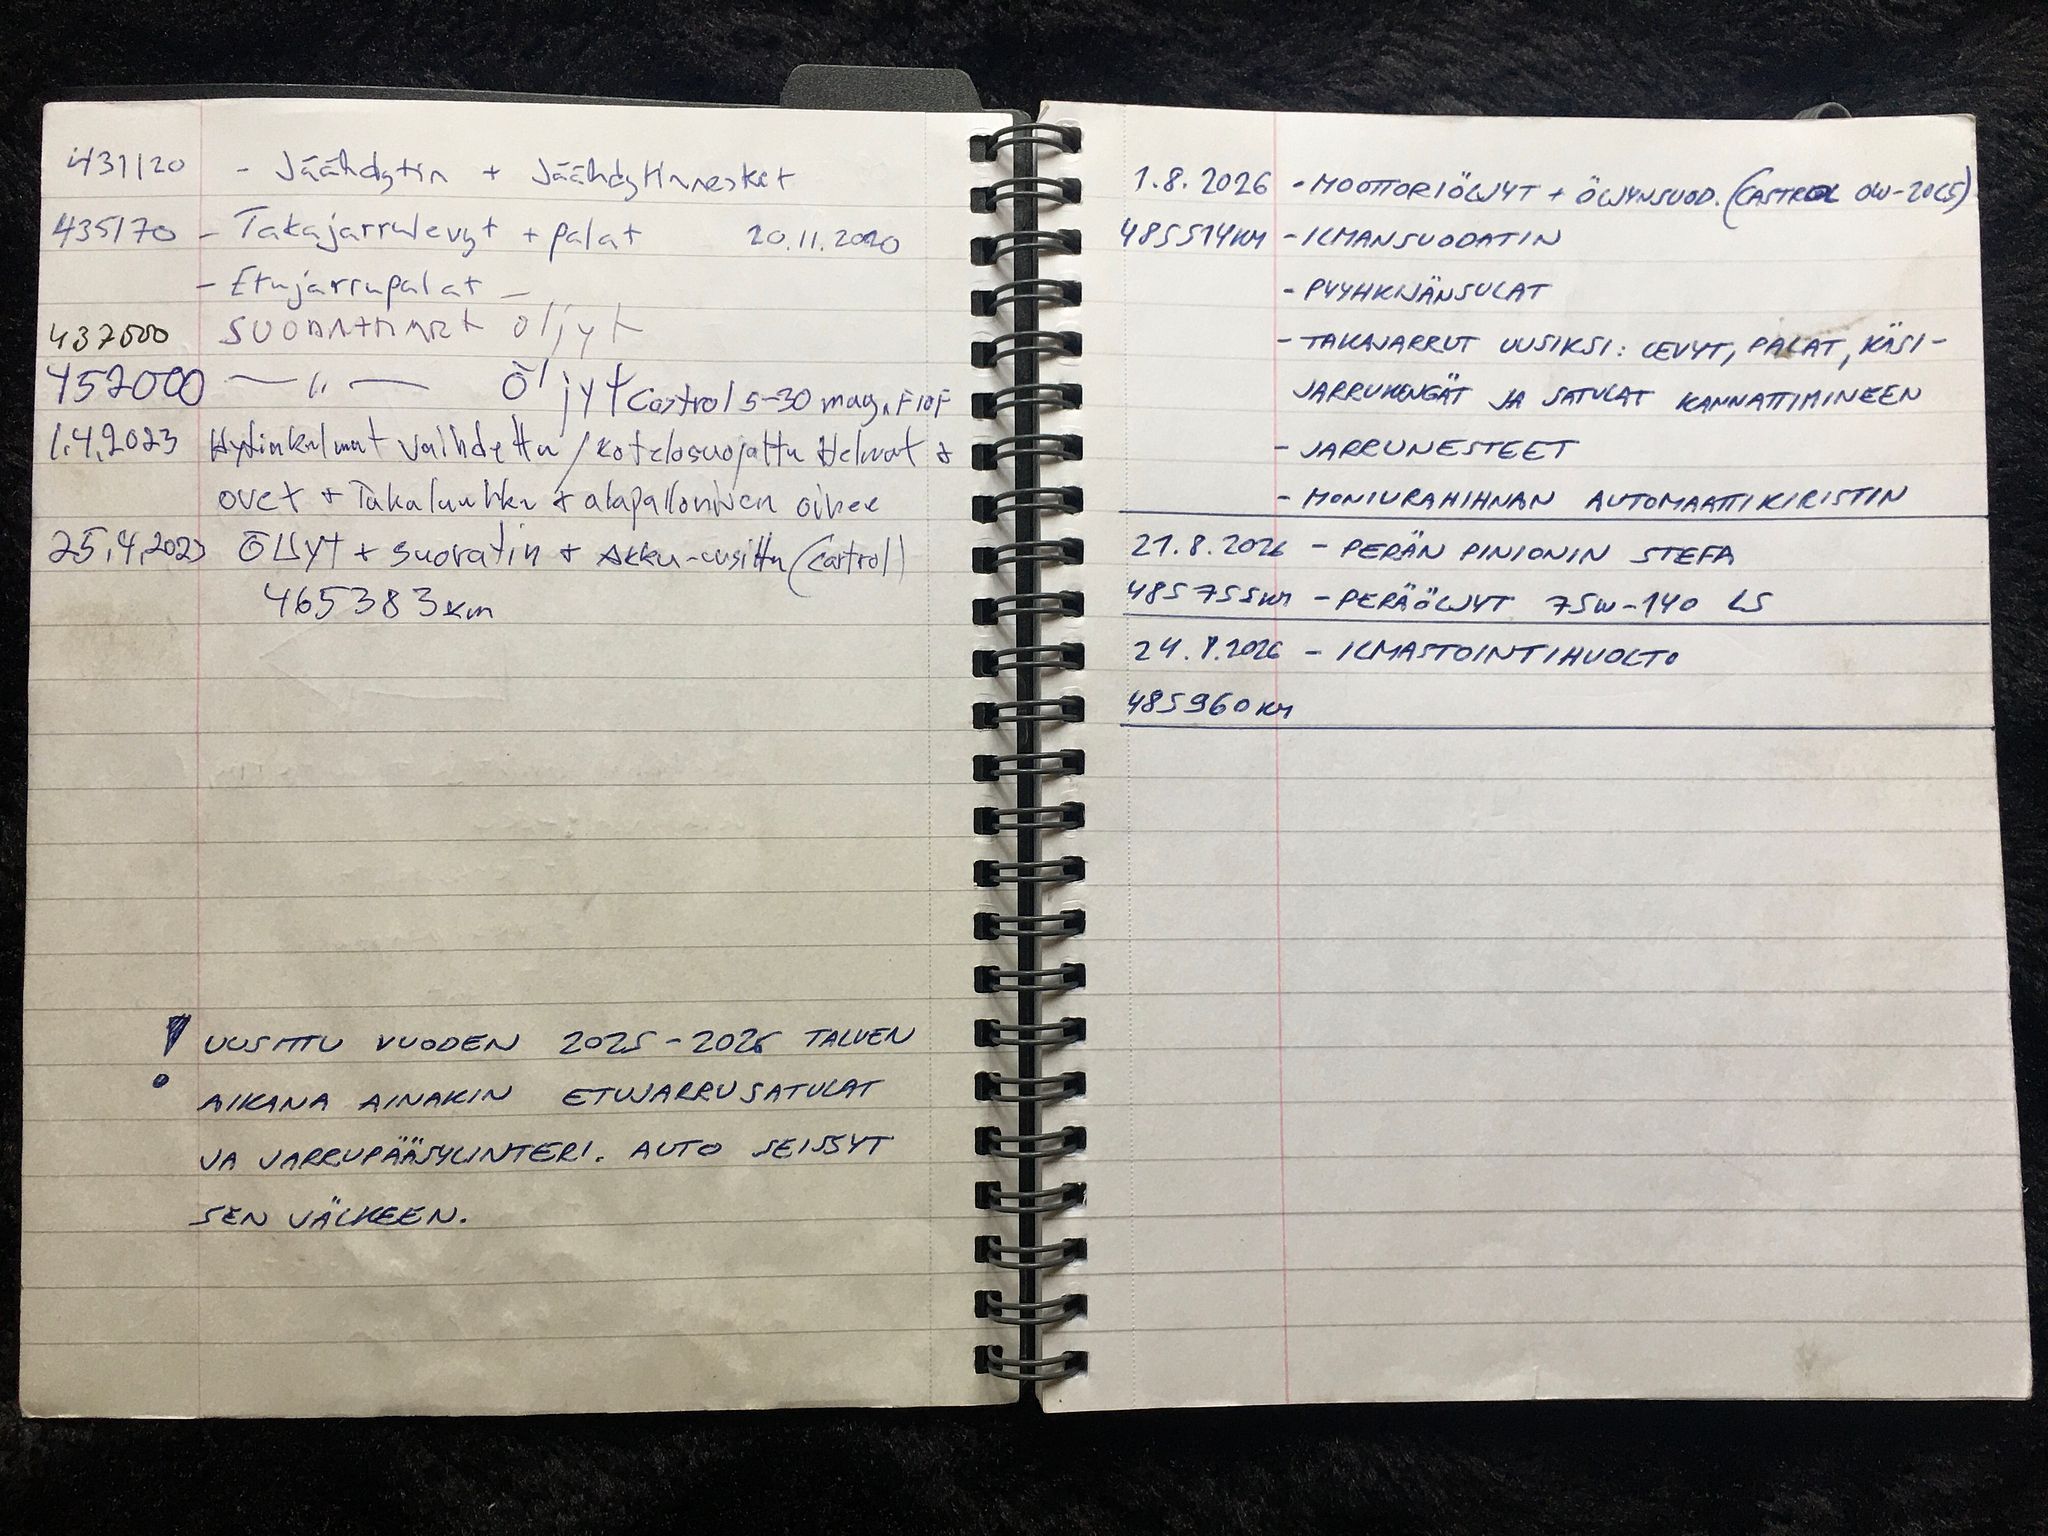 431120 - Jäähdytin + Jäähdytinnesket
435170 - Takajarrulevyt + palat 20.11.2020
- Etujarrupalat -
437000 SUODATTIMET öljyt
452000 — " — Öljyt Castrol 5-30 mag.
1.4.2023 vaihdettu / Kotelosuojattu Helmat +
ovet + Takaluukku + oikee
25.4.2023 ÖLJyt + suovatin + Akku-uusittu (Castrol)
465383 km
! UUSITTU VUODEN 2025-2026 TALVEN
AIKANA AINAKIN ETUJARRUSATULAT
JA JARRUPÄÄSYLINTERI. AUTO SEISSYT
SEN JÄLKEEN.
1.8.2026 - MOOTTORIÖLJYT + ÖLJYNSUOD. (CASTROL 0W-20C5)
485514KM - ILMANSUODATIN
- PYYHKIJÄNSULAT
- TAKAJARRUT UUSIKSI: LEVYT, PALAT, KÄSI-
JARRUKENGÄT JA SATULAT KANNATTIMINEEN
- JARRUNESTEET
- MONIURAHIHNAN AUTOMAATTIKIRISTIN
21.8.2026 - PERÄN PINIONIN STEFA
485755KM - PERÄÖLJYT 75W-140 LS
24.8.2026 - ILMASTOINTIHUOLTO
485960KM